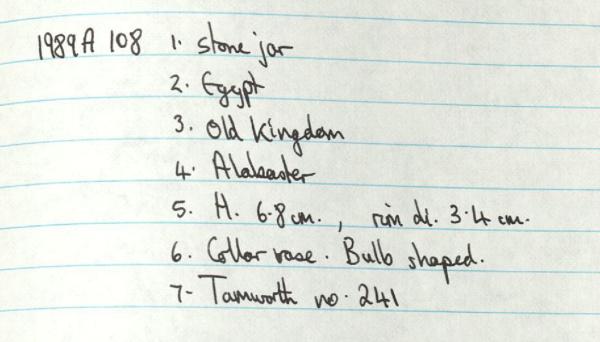 1989A 108 1. Stone jar
2. Egypt
3. Old Kingdom
4. Alabaster
5. H. 6.8 cm., rim di. 3.4 cm.
6. Collar vase. Bulb shaped.
7- Tamworth no. 241